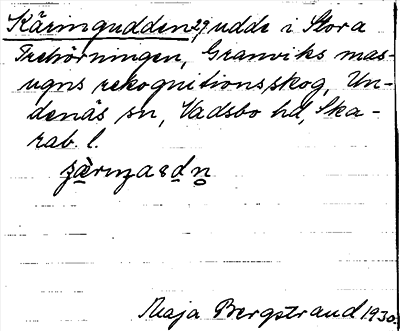 Kärmgudden 29, udde i Stora
Trehörningen, Granviks mas-
ugns rekognitionsskog, Un-
denäs sn, Vadsbo hd, Ska-
rab. l.
Maja Bergstrand 1930.